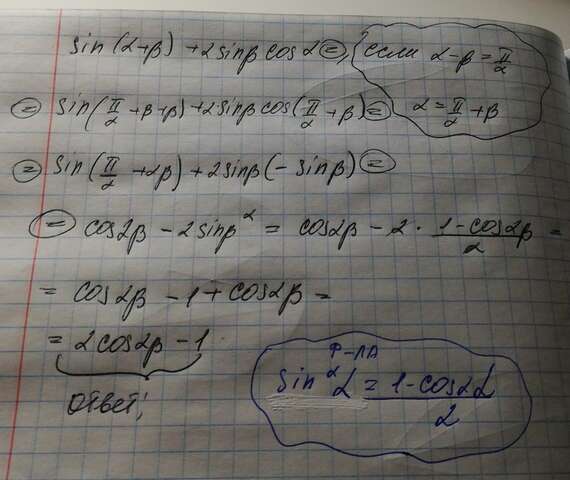 sin(α+β) + 2sinβ cos α =, если α-β = π/2
= sin(π/2 + β + β) + 2sinβ cos(π/2 + β) = α = π/2 + β
= sin(π/2 + 2β) + 2sinβ(- sinβ) =
= cos2β - 2sinβ² = cos2β - 2 · (1-cos2β)/2 =
= cos2β - 1 + cos2β =
= 2cos2β - 1
Ответ;
Ф-ЛА
sin²α = (1-cos2α)/2